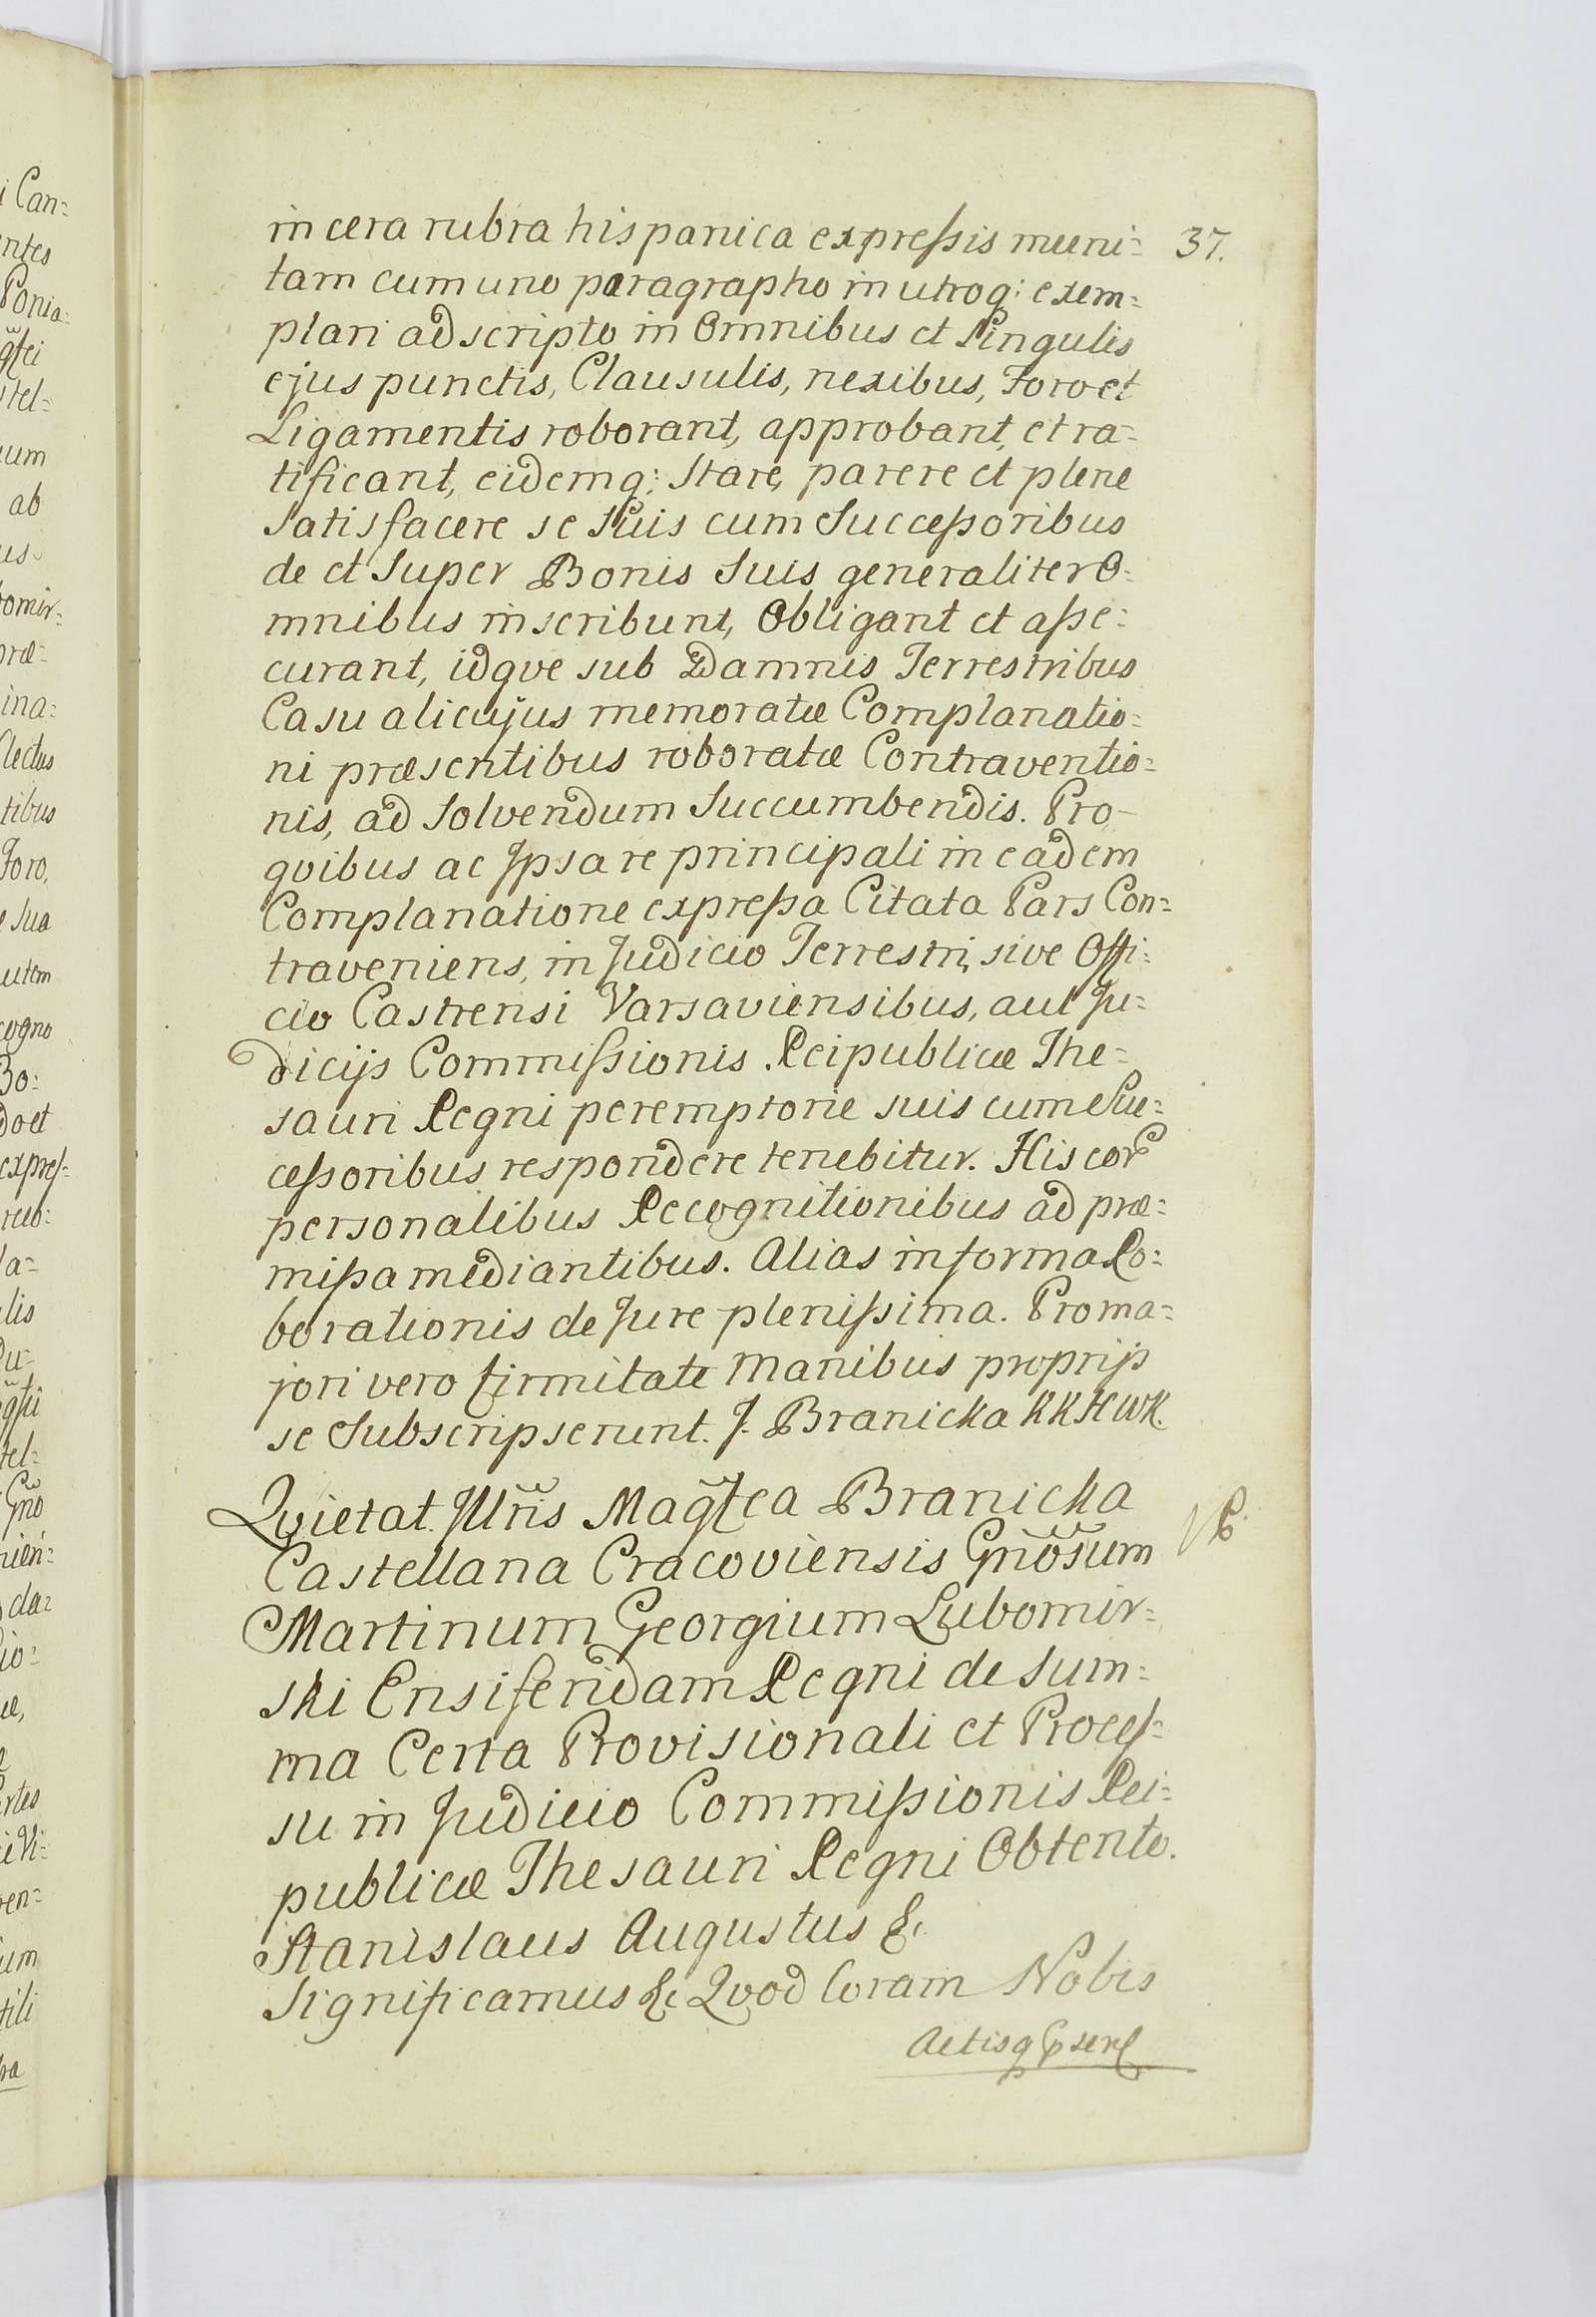 in cera rubra hispanica expressis muni= 37.
tam cum uno paragrapho in utroq: exem=
plari adscripto in Omnibus et Singulis
ejus punctis, Clausulis, nexibus, Foro et
Ligamentis roborant, approbant, et ra=
tificant, eidemq: Stare, parere et plene
Satisfacere se Suis cum Successoribus
de et Super Bonis Suis generaliter O=
mnibus inscribunt, Obligant et asse=
curant, idqve sub Damnis Terrestribus
Casu alicujus memoratæ Complanatio=
ni præsentibus roboratæ Contraventio=
nis, ad Solvendum Succumbendis. Pro-
qvibus ac Ipsa re principali in eadem
Complanatione expressa Citata Pars Con=
traveniens, in Judicio Terrestri, sive Offi=
cio Castrensi Varsaviensibus, aut Ju=
dicijs Commissionis Reipublicæ The=
sauri Regni peremptorie suis cum Suc=
cessoribus respondere tenebitur. His cor
personalibus Recognitionibus ad præ=
missa mediantibus. Alias in forma Ro=
borationis de Jure plenissima. Pro ma=
jori vero firmitate Manibus proprijs
se Subscripserunt. J. Branicka KKHWK.
Qvietat. Illris Magfca Branicka
Castellana Cracoviensis Gnosum
Martinum Georgium Lubomir=
ski Ensiferidam Regni de Sum=
ma Certa Provisionali et Proces=
su in Judicio Commissionis Rei=
publicæ Thesauri Regni Obtento.
Stanislaus Augustus &c
Significamus &c Qvod Coram Nobis
Actisq